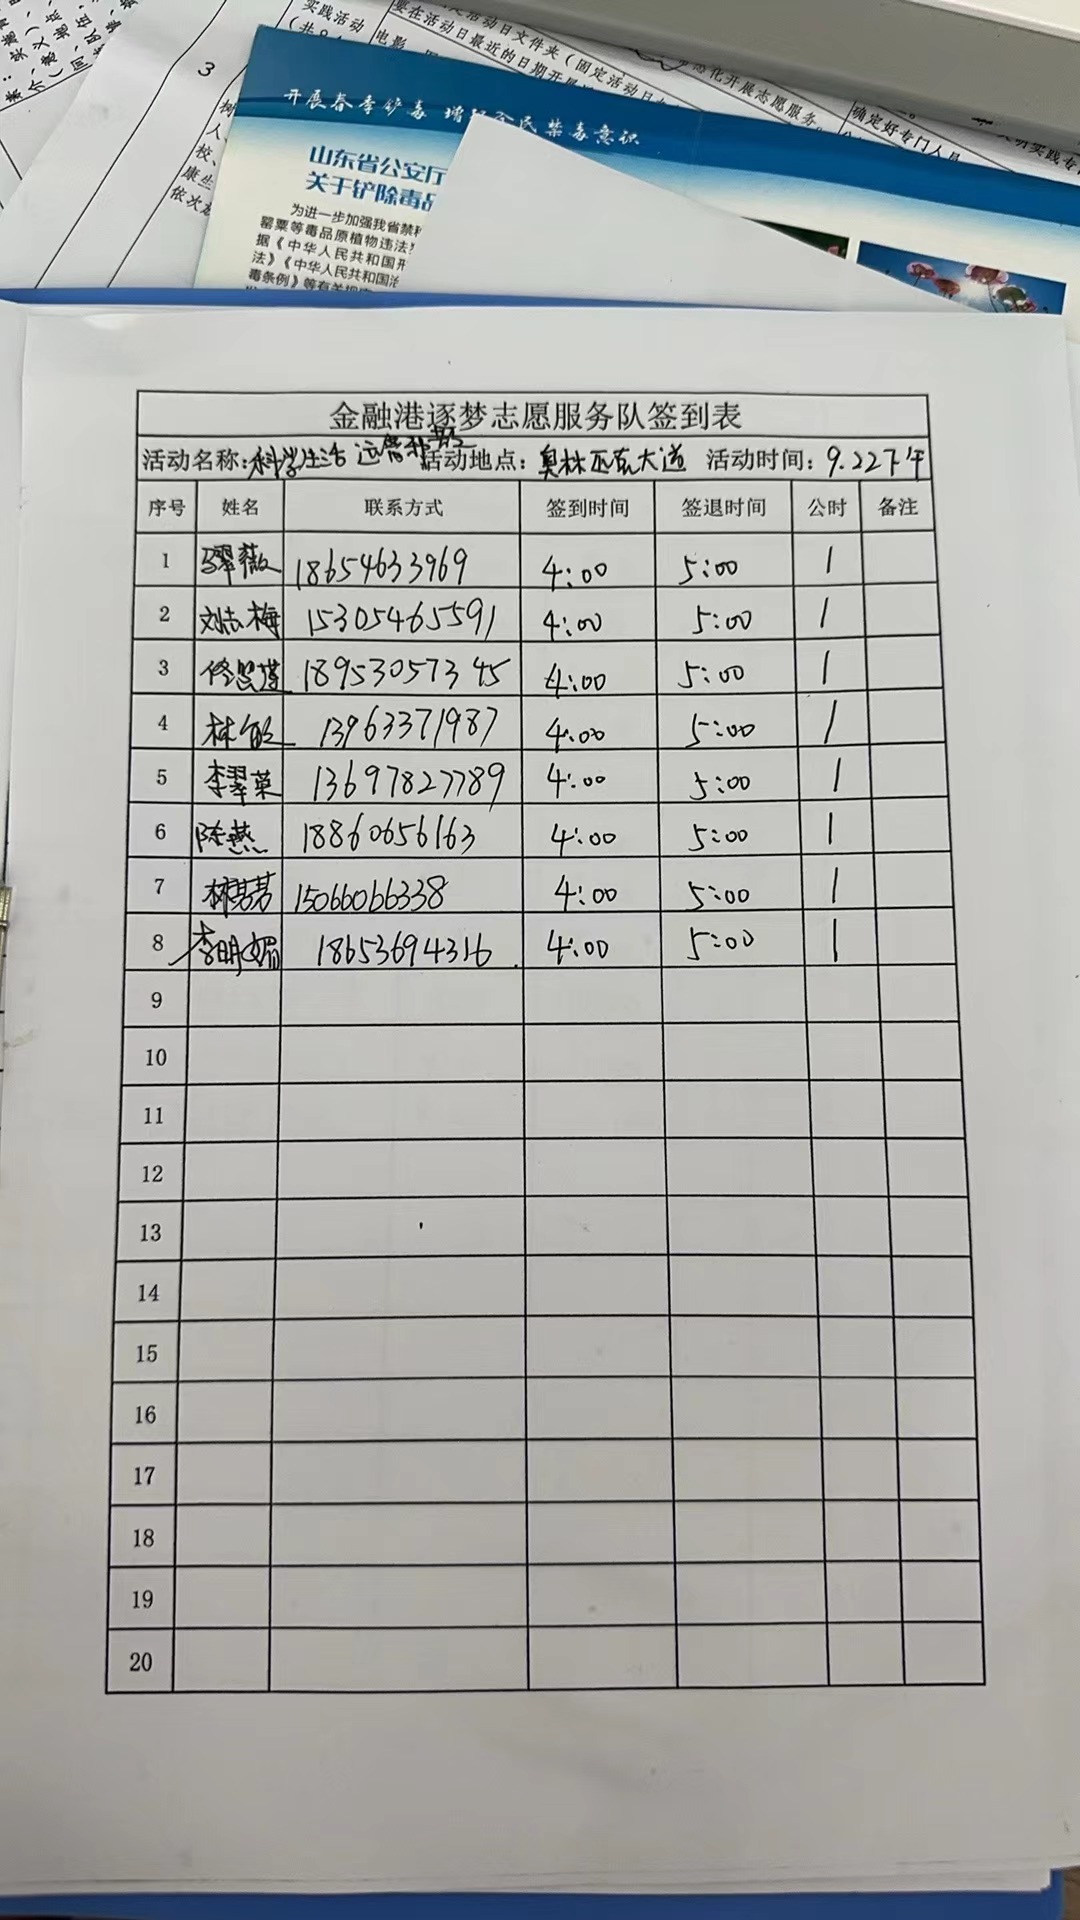 3
实践活动
要在活动日最近的日期开展
活动日文件夹(固定活动日
态化开展志愿服务。
确定好专门人员
开展春季铲毒 增强全民禁毒意识
山东省公安厅
关于铲除毒品
为进一步加强我省禁种
罂粟等毒品原植物违法
据《中华人民共和国刑
法》《中华人民共和国治
毒条例》等有关规定
金融港逐梦志愿服务队签到表
活动名称:科学生活 远离邪教 活动地点:奥林匹克大道 活动时间:9.22下午
序号 姓名 联系方式 签到时间 签退时间 公时 备注
1 翠薇 18654633969 4:00 5:00 1
2 刘志梅 15305465591 4:00 5:00 1
3 修思莲 18953057345 4:00 5:00 1
4 林敏 13963371987 4:00 5:00 1
5 李翠菊 13697827789 4:00 5:00 1
6 陈燕 18860656163 4:00 5:00 1
7 林芳芳 15066066338 4:00 5:00 1
8 李明媚 18653694316 4:00 5:00 1
9
10
11
12
13
14
15
16
17
18
19
20